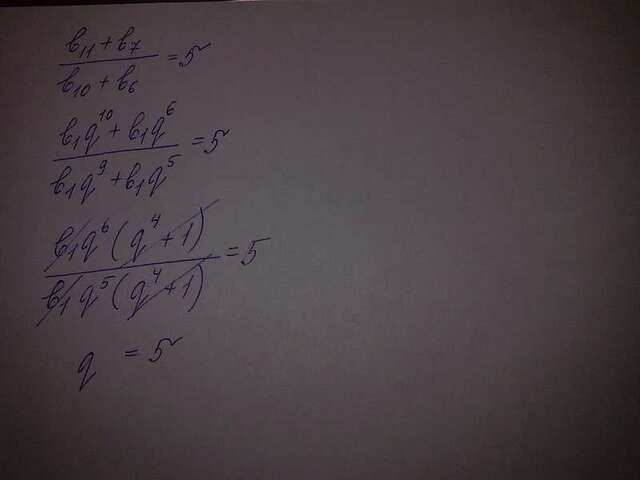 (b₁₁ + b₇) / (b₁₀ + b₆) = 5
(b₁q¹⁰ + b₁q⁶) / (b₁q⁹ + b₁q⁵) = 5
(b₁q⁶(q⁴ + 1)) / (b₁q⁵(q⁴ + 1)) = 5
q = 5